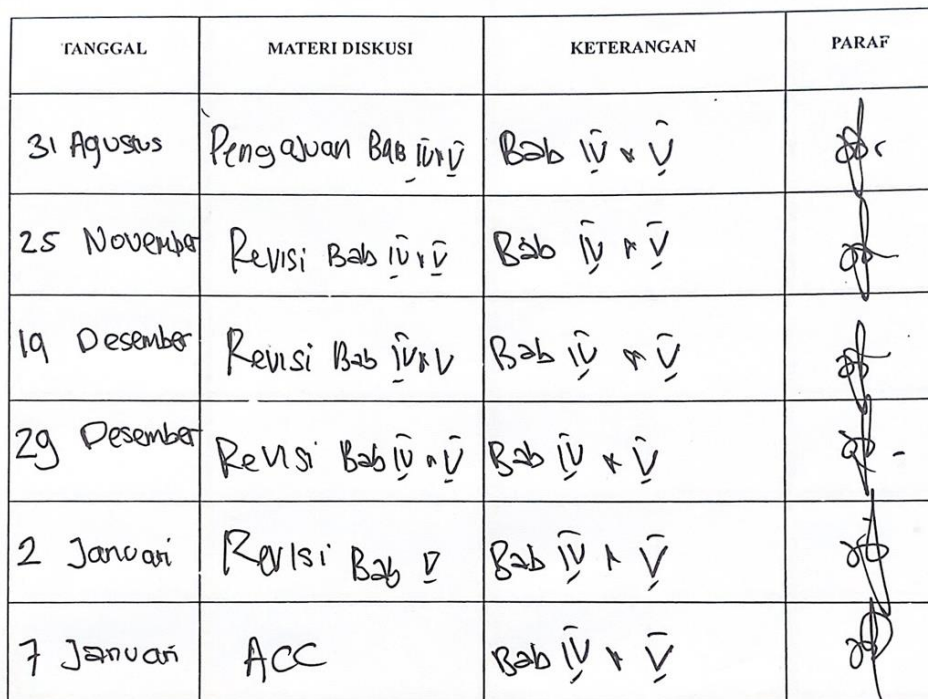 TANGGAL MATERI DISKUSI KETERANGAN PARAF
31 Agustus Pengajuan Bab IV & V Bab IV & V
25 November Revisi Bab IV & V Bab IV & V
19 Desember Revisi Bab IV & V Bab IV & V
29 Desember Revisi Bab IV & V Bab IV & V
2 Januari Revisi Bab V Bab IV & V
7 Januari ACC Bab IV & V